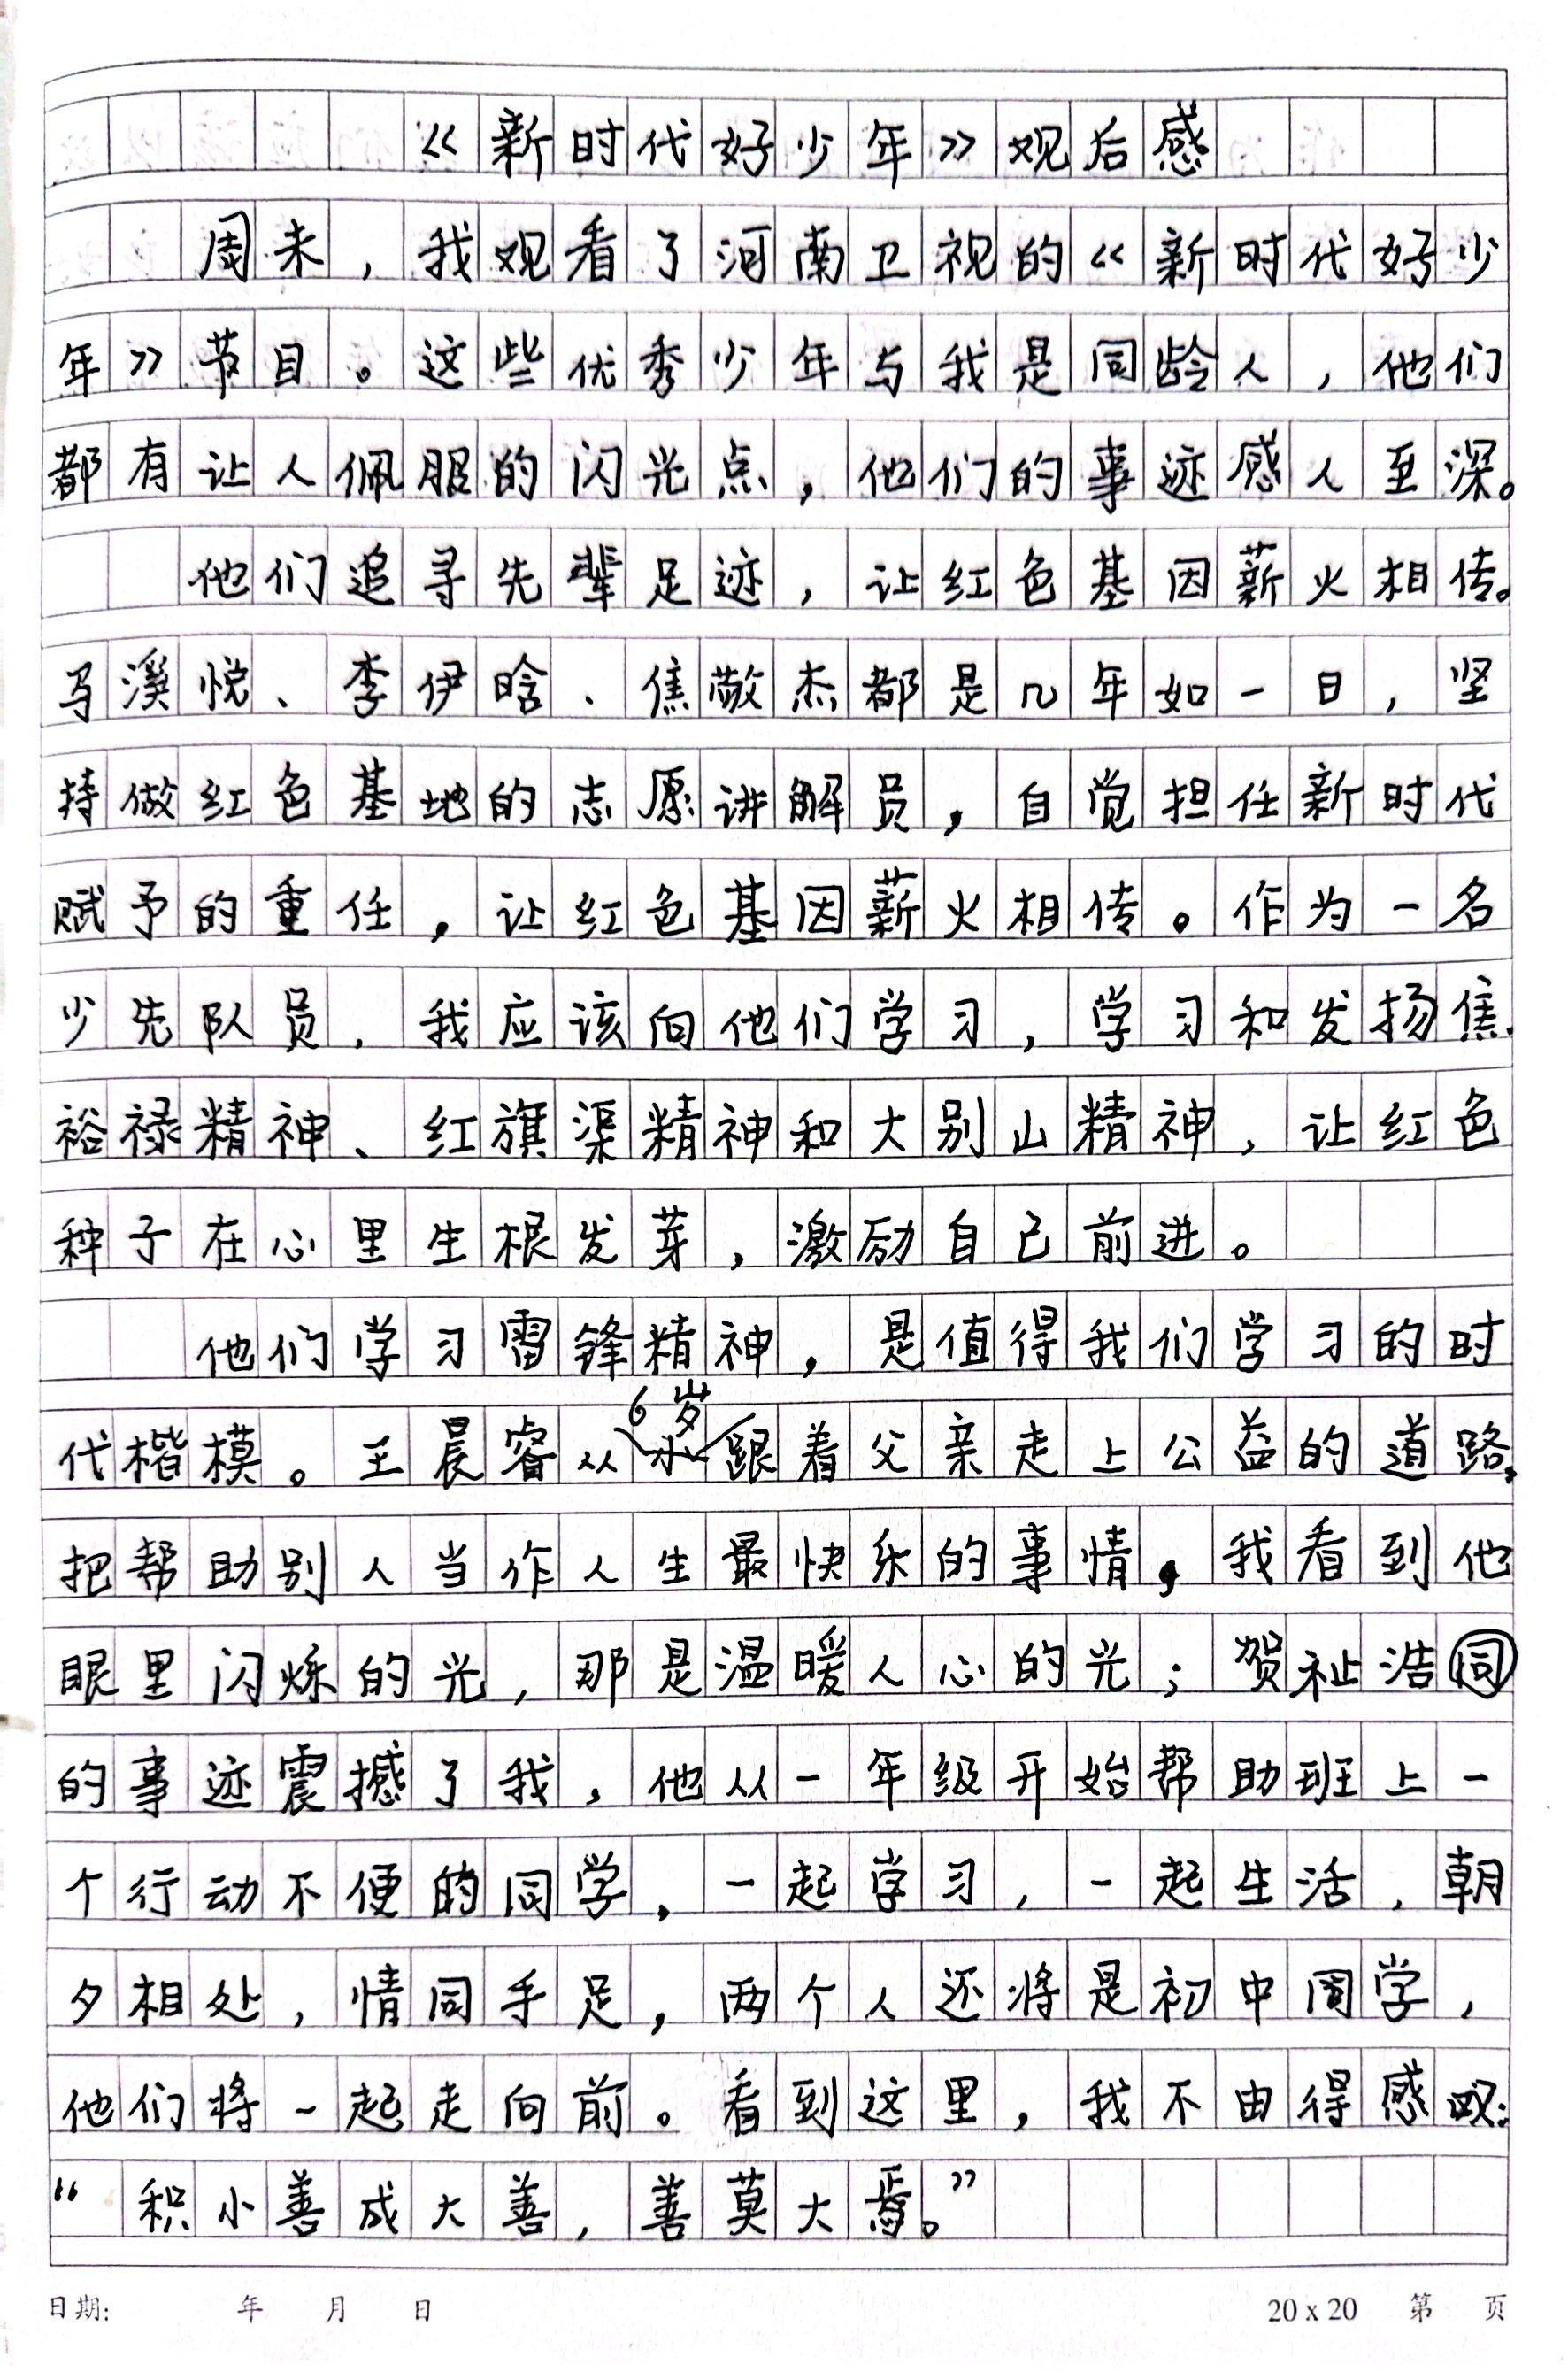 《新时代好少年》观后感
周末，我观看了河南卫视的《新时代好少
年》节目。这些优秀少年与我是同龄人，他们
都有让人佩服的闪光点，他们的事迹感人至深。
他们追寻先辈足迹，让红色基因薪火相传。
马溪悦、李伊晗、焦敬杰都是几年如一日，坚
持做红色基地的志愿讲解员，自觉担任新时代
赋予的重任，让红色基因薪火相传。作为一名
少先队员，我应该向他们学习，学习和发扬焦
裕禄精神、红旗渠精神和大别山精神，让红色
种子在心里生根发芽，激励自己前进。
他们学习雷锋精神，是值得我们学习的时
代楷模。王晨睿从6岁跟着父亲走上公益的道路，
把帮助别人当作人生最快乐的事情，我看到他
眼里闪烁的光，那是温暖人心的光；贺祉浩同
的事迹震撼了我，他从一年级开始帮助班上一
个行动不便的同学，一起学习，一起生活，朝
夕相处，情同手足，两个人还将是初中同学，
他们将一起走向前。看到这里，我不由得感叹：
“积小善成大善，善莫大焉。”
日期： 年 月 日 20 x 20 第 页